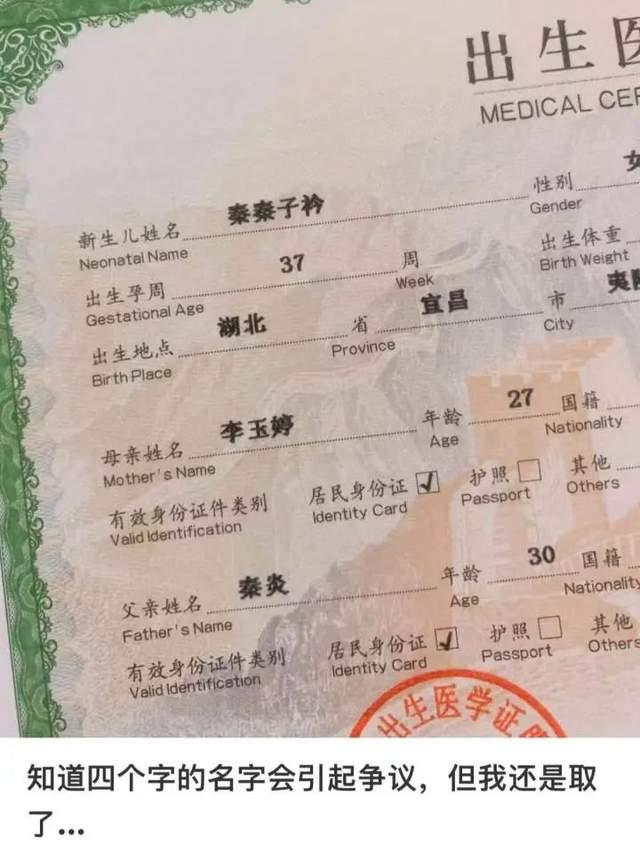 出生医
MEDICAL CER
新生儿姓名 秦秦子衿 性别 女
Neonatal Name Gender
出生孕周 37 周 出生体重
Gestational Age Week Birth Weight
出生地点 湖北 省 宜昌 市 夷
Birth Place Province City
母亲姓名 李玉婷 年龄 27 国籍
Mother's Name Age Nationality
有效身份证件类别 居民身份证 护照 其他
Valid Identification Identity Card Passport Others
父亲姓名 秦炎 年龄 30 国籍
Father's Name Age Nationality
有效身份证件类别 居民身份证 护照 其他
Valid Identification Identity Card Passport Others
出生医学证
知道四个字的名字会引起争议，但我还是取
了...